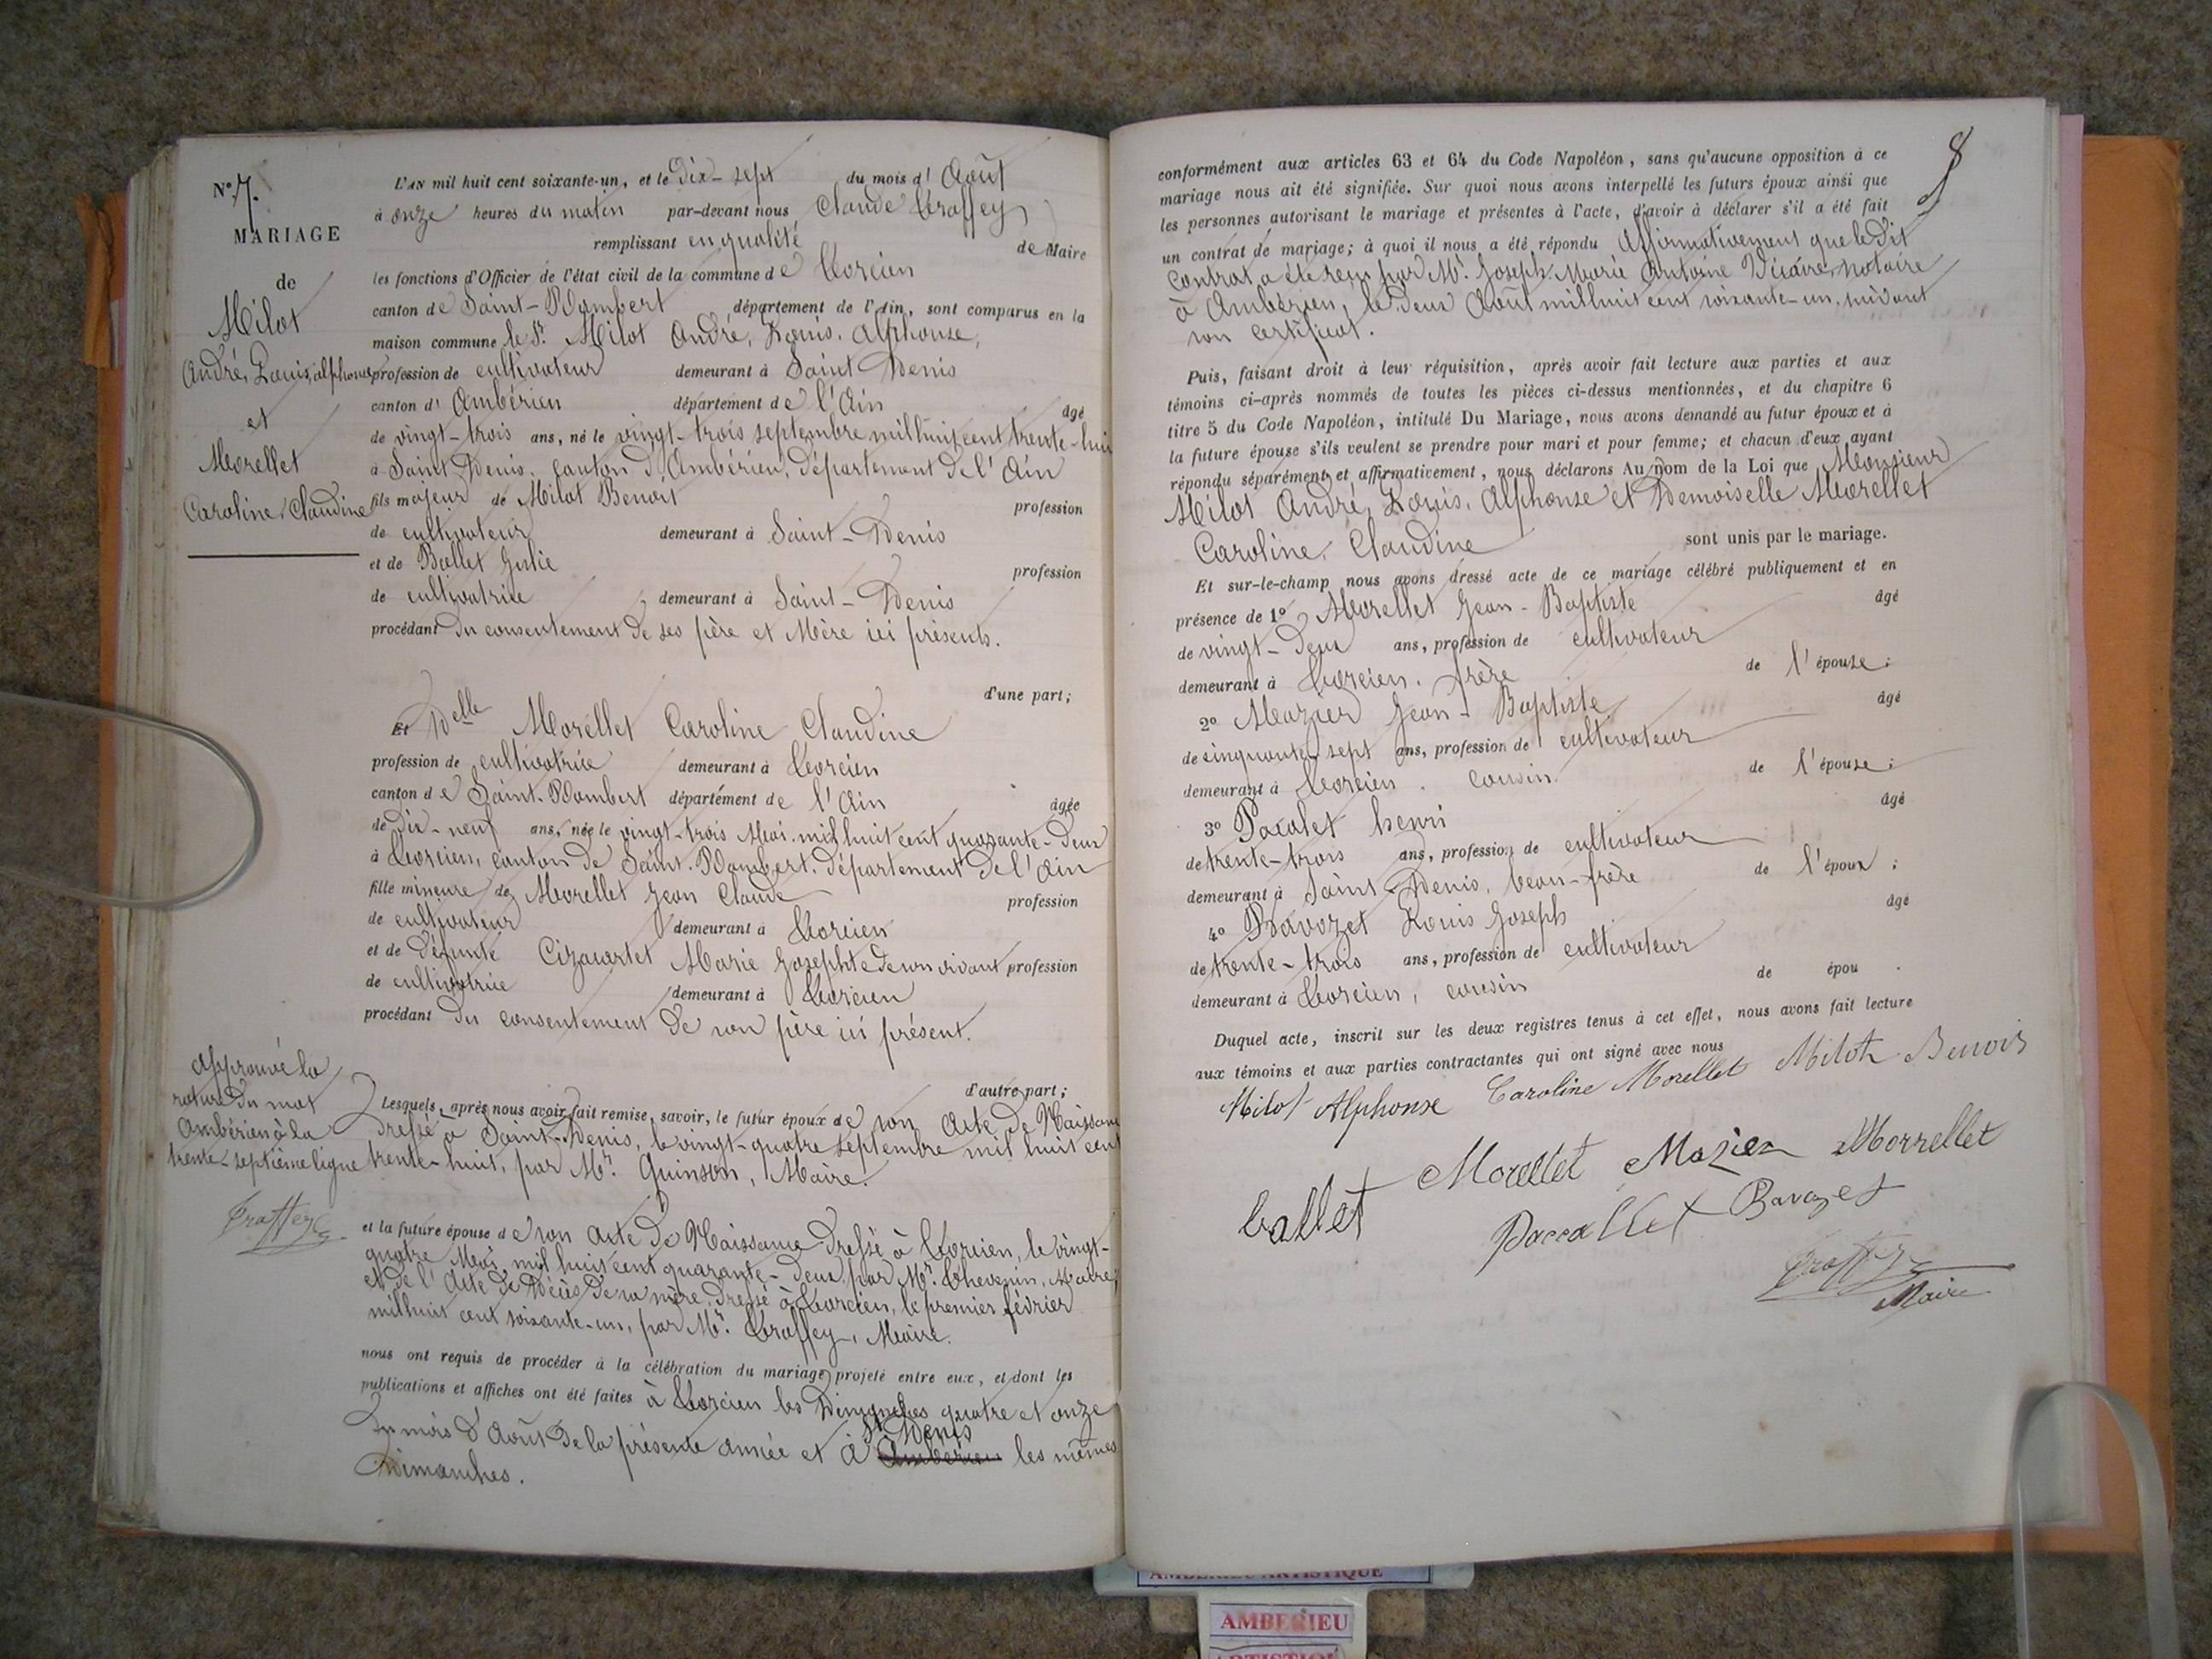 N° 7.
MARIAGE
de
Milot
André, Louis, alphonse
et
Morellet
Caroline, Claudine
L'AN mil huit cent soixante-un, et le Dix-sept du mois d' Août
à onze heures du matin par-devant nous Claude Traffey,
remplissant en qualité de Maire
les fonctions d'Officier de l'état civil de la commune de Torcieu
canton de Saint-Rambert département de l'Ain, sont comparus en la
maison commune le Sr. Milot André, Louis, Alphonse,
profession de cultivateur demeurant à Saint Denis
canton d' Ambérieu département de l'Ain âgé
de vingt-trois ans, né le vingt-trois septembre mil huit cent trente-huit
à Saint Denis, canton d'Ambérieu, département de l'Ain
fils majeur de Milot Benoit profession
de cultivateur demeurant à Saint-Denis
et de Ballet Julie profession
de cultivatrice demeurant à Saint-Denis
procédant du consentement de ses père et Mère ici présents.
d'une part;
Et Delle Morellet Caroline Claudine
profession de cultivatrice demeurant à Torcieu
canton de Saint-Rambert département de l'Ain âgée
de Dix-neuf ans, née le vingt-trois Mai mil huit cent quarante-deux
à Torcieu, canton de Saint-Rambert, département de l'Ain
fille mineure de Morellet Jean Claude profession
de cultivateur demeurant à Torcieu
et de défunte Marie Josephte de son vivant profession
de cultivatrice demeurant à Torcieu
procédant du consentement de son père ici présent.
d'autre part;
Approuvé la
rature du mot
Ambérieu à la
trente-septième ligne
Traffey
Lesquels, après nous avoir fait remise, savoir, le futur époux de son Acte de Naissance
dressé à Saint-Denis, le vingt-quatre septembre mil huit cent
trente-huit, par Mr. Quinson, Maire.
et la future épouse de son Acte de Naissance dressé à Torcieu, le vingt-
quatre Mai mil huit cent quarante-deux, par Mr. Thevenin, Maire;
et de l'Acte de Décès de sa mère, dressé à Torcieu, le premier février
mil huit cent soixante-un, par Mr. Traffey, Maire.
nous ont requis de procéder à la célébration du mariage projeté entre eux, et dont les
publications et affiches ont été faites à Torcieu les Dimanches quatre et onze
du mois d'Août de la présente année et à Ambérieu St Denis les mêmes
Dimanches.
8
conformément aux articles 63 et 64 du Code Napoléon, sans qu'aucune opposition à ce
mariage nous ait été signifiée. Sur quoi nous avons interpellé les futurs époux ainsi que
les personnes autorisant le mariage et présentes à l'acte, d'avoir à déclarer s'il a été fait
un contrat de mariage; à quoi il nous a été répondu Affirmativement que le dit
contrat a été reçu par Mr. Joseph Marie Antoine Vicaire, notaire
à Ambérieu, le deux Août mil huit cent soixante-un, suivant
son certificat.
Puis, faisant droit à leur réquisition, après avoir fait lecture aux parties et aux
témoins ci-après nommés de toutes les pièces ci-dessus mentionnées, et du chapitre 6
titre 5 du Code Napoléon, intitulé Du Mariage, nous avons demandé au futur époux et à
la future épouse s'ils veulent se prendre pour mari et pour femme; et chacun d'eux ayant
répondu séparément et affirmativement, nous déclarons Au nom de la Loi que Monsieur
Milot André, Louis, Alphonse et Demoiselle Morellet
Caroline, Claudine sont unis par le mariage.
Et sur-le-champ nous avons dressé acte de ce mariage célébré publiquement et en
présence de 1° Morellet Jean-Baptiste âgé
de vingt-deux ans, profession de cultivateur
demeurant à Torcieu, frère de l'épouse;
2° Mazier Jean-Baptiste âgé
de cinquante-sept ans, profession de cultivateur
demeurant à Torcieu, cousin de l'épouse;
3° Pacalet henri âgé
de trente-trois ans, profession de cultivateur
demeurant à Saint-Denis, beau-frère de l'époux;
4° Bavozet Louis Joseph âgé
de trente-trois ans, profession de cultivateur
demeurant à Torcieu, cousin de épou .
Duquel acte, inscrit sur les deux registres tenus à cet effet, nous avons fait lecture
aux témoins et aux parties contractantes qui ont signé avec nous
Milot Alphonse Caroline Morellet Milot Benoit
ballet Morellet Mazier Morrellet
Paccallet Bavozet
Traffey
Maire
AMBERIEU ARTISTIQUE
AMBERIEU
ARTISTIQUE